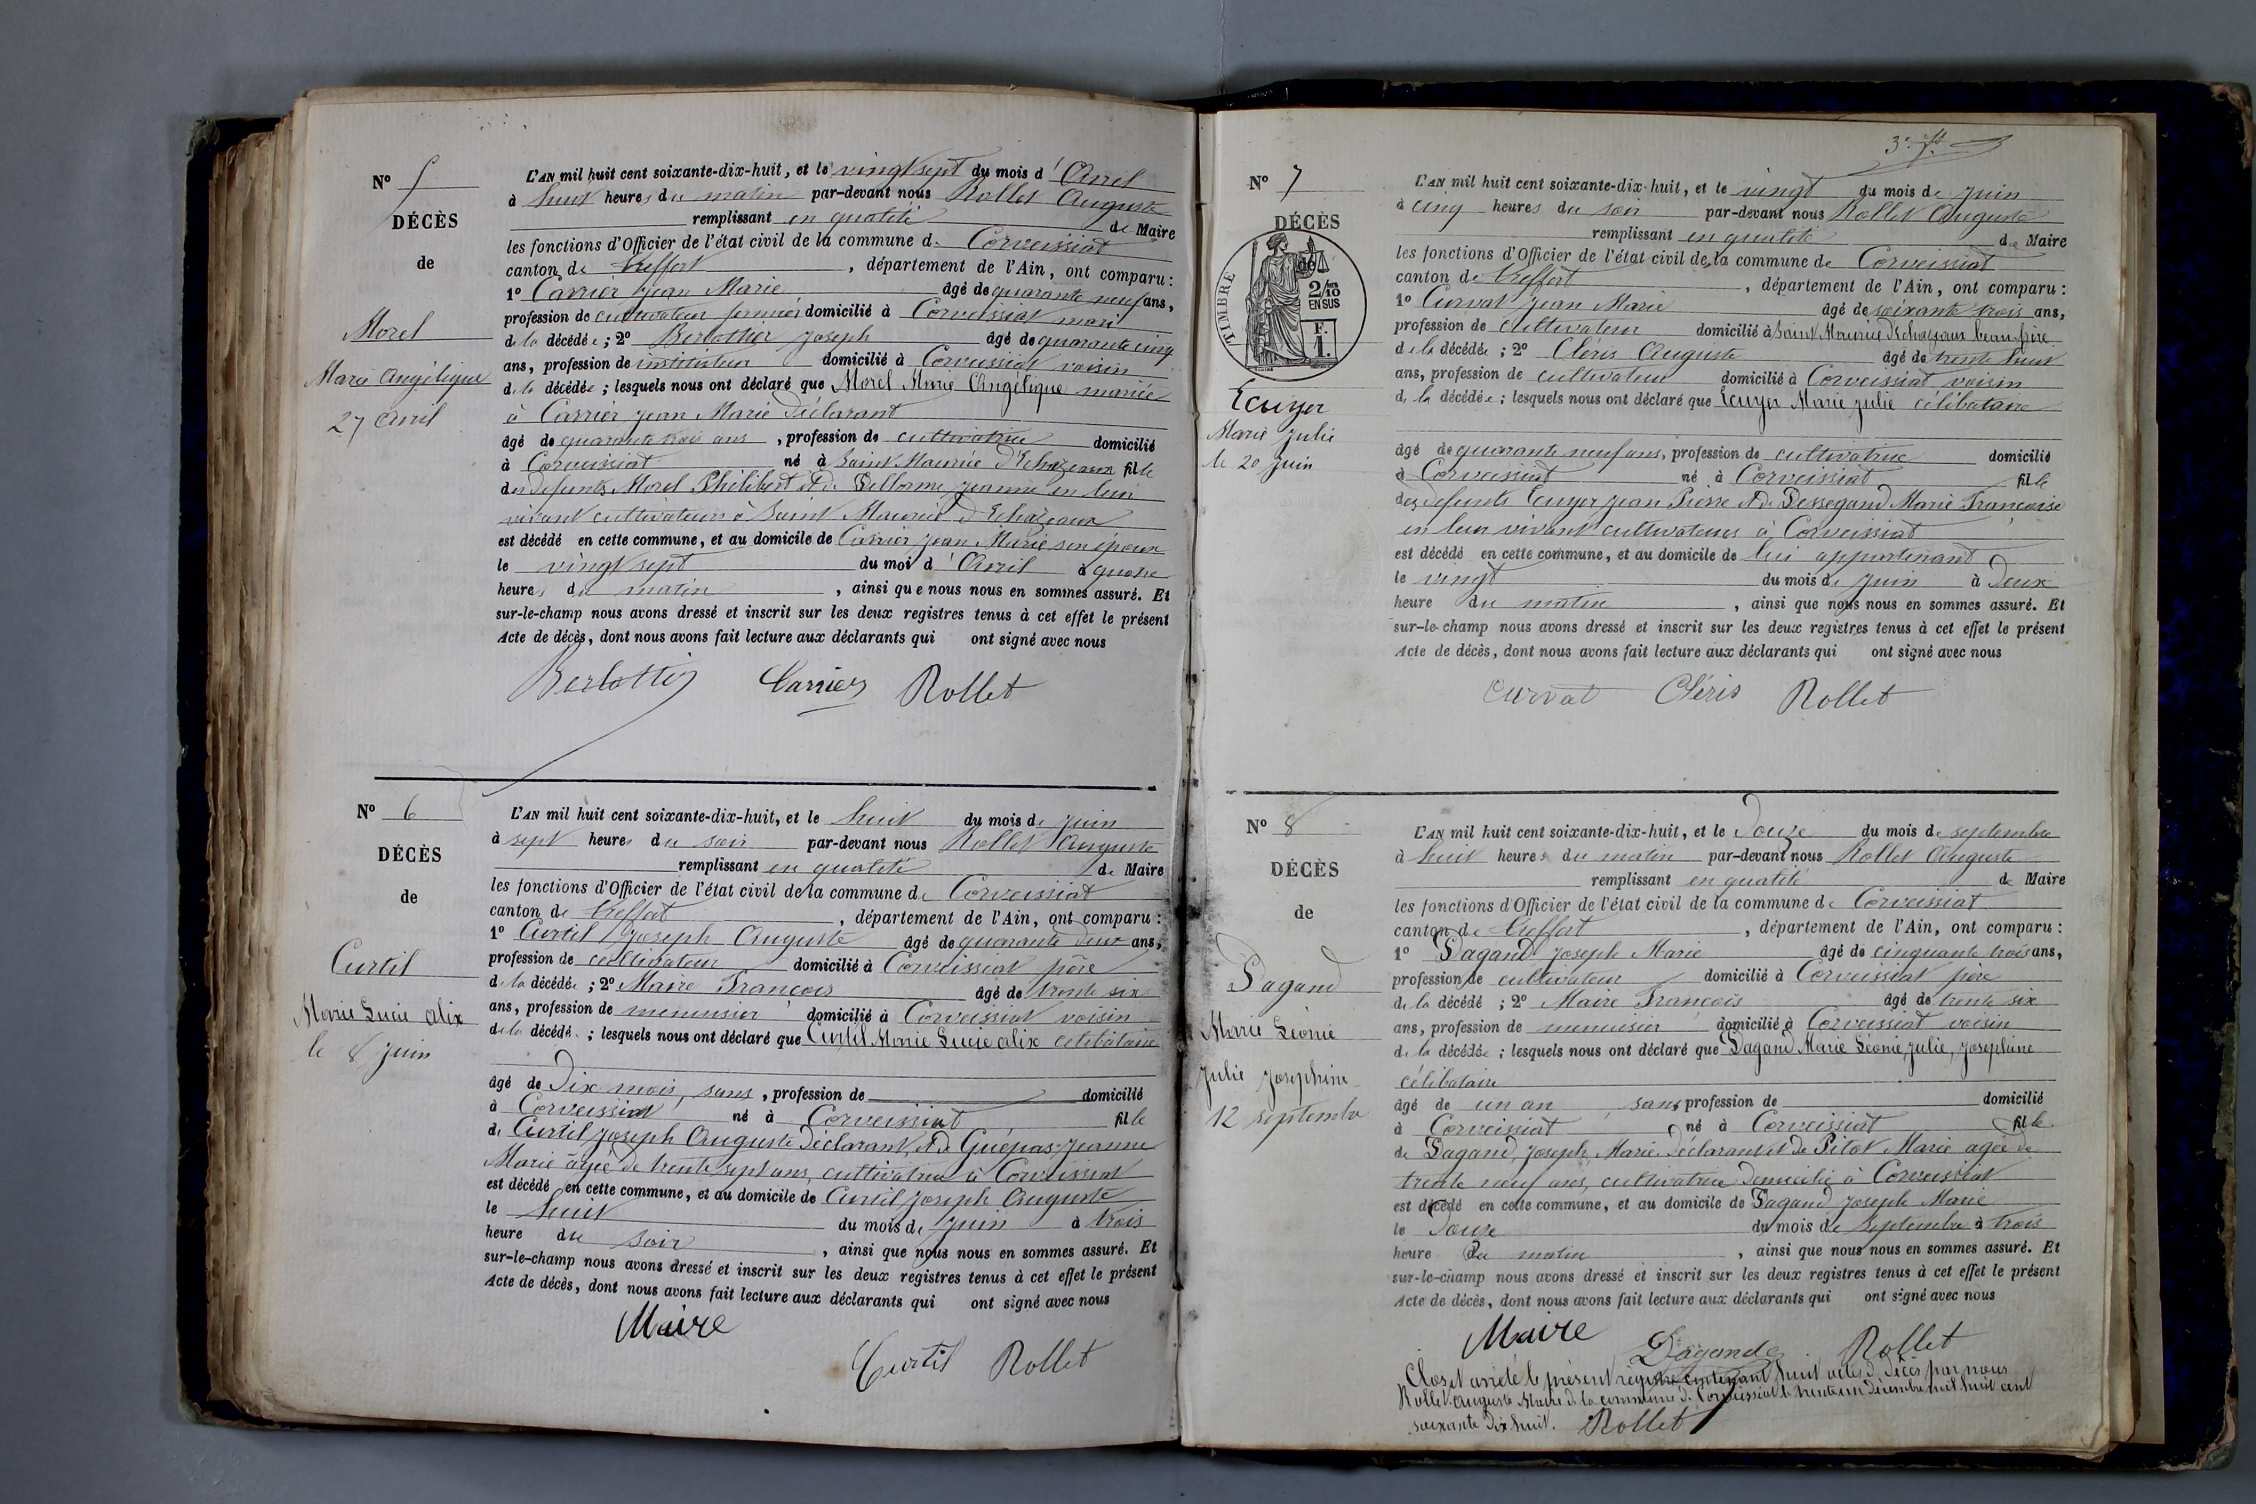 N° 5
DÉCÈS
de
Morel
Marie Angélique
27 avril
L'AN mil huit cent soixante-dix-huit, et le vingt sept du mois d'Avril
à huit heures du matin par-devant nous Rollet Auguste
remplissant en qualité de Maire
les fonctions d'Officier de l'état civil de la commune de Corveissiat
canton de Treffort, département de l'Ain, ont comparu :
1° Carrier Jean Marie âgé de quarante neuf ans,
profession de cultivateur fermier domicilié à Corveissiat mari
de la décédée ; 2° Berlottier Joseph âgé de quarante cinq
ans, profession de instituteur domicilié à Corveissiat voisin
de la décédée ; lesquels nous ont déclaré que Morel Marie Angélique mariée
à Carrier Jean Marie déclarant
âgé de quarante trois ans, profession de cultivatrice domicilié
à Corveissiat né à Saint Maurice d'Echazeaux fille
des defunts Morel Philibert et de Dellorme Jeanne en leur
vivant cultivateurs à Saint Maurice d'Echazeaux
est décédé en cette commune, et au domicile de Carrier Jean Marie son époux
le vingt sept du moi d'Avril à quatre
heures du matin, ainsi que nous nous en sommes assuré. Et
sur-le-champ nous avons dressé et inscrit sur les deux registres tenus à cet effet le présent
Acte de décès, dont nous avons fait lecture aux déclarants qui ont signé avec nous
Carrier Rollet
N° 6
DÉCÈS
de
Curtil
Marie Lucie Alix
le 8 juin
L'AN mil huit cent soixante-dix-huit, et le huit du mois de juin
à sept heures du soir par-devant nous Rollet Auguste
remplissant en qualité de Maire
les fonctions d'Officier de l'état civil de la commune de Corveissiat
canton de Treffort, département de l'Ain, ont comparu :
1° Curtil Joseph Auguste âgé de quarante deux ans,
profession de cultivateur domicilié à Corveissiat père
de la décédée ; 2° Maire François âgé de trente six
ans, profession de menuisier domicilié à Corveissiat voisin
de la décédée ; lesquels nous ont déclaré que Curtil Marie Lucie Alix célibataire
âgé de Dix mois, sans, profession de domicilié
à Corveissiat né à Corveissiat fille
de Curtil Joseph Auguste déclarant, et de Guépas Jeanne
Marie âgée de trente sept ans, cultivatrice à Corveissiat
est décédé en cette commune, et au domicile de Curtil Joseph Auguste
le huit du mois de juin à trois
heure du soir, ainsi que nous nous en sommes assuré. Et
sur-le-champ nous avons dressé et inscrit sur les deux registres tenus à cet effet le présent
Acte de décès, dont nous avons fait lecture aux déclarants qui ont signé avec nous
Maire
Curtil Rollet
N° 7
DÉCÈS
de
TIMBRE
2/10
EN SUS
F.
1.
Ecuyer
Marie Julie
le 20 juin
L'AN mil huit cent soixante-dix-huit, et le vingt du mois de juin
à cinq heures du soir par-devant nous Rollet Auguste
remplissant en qualité de Maire
les fonctions d'Officier de l'état civil de la commune de Corveissiat
canton de Treffort, département de l'Ain, ont comparu :
1° Curvat Jean Marie âgé de soixante trois ans,
profession de cultivateur domicilié à Saint Maurice d'Echazeaux beau frère
de la décédée ; 2° Cléris Auguste âgé de trente huit
ans, profession de cultivateur domicilié à Corveissiat voisin
de la décédée ; lesquels nous ont déclaré que Ecuyer Marie Julie célibataire
âgé de quarante neuf ans, profession de cultivatrice domicilié
à Corveissiat né à Corveissiat fille
des defunts Ecuyer Jean Pierre et de Dessegand Marie Françoise
en leur vivant cultivateurs à Corveissiat
est décédé en cette commune, et au domicile de lui appartenant
le vingt du mois de juin à Deux
heure du matin, ainsi que nous nous en sommes assuré. Et
sur-le-champ nous avons dressé et inscrit sur les deux registres tenus à cet effet le présent
Acte de décès, dont nous avons fait lecture aux déclarants qui ont signé avec nous
Curvat Cléris Rollet
N° 8
DÉCÈS
de
Dagand
Marie Léonie
Julie Josephine
12 septembre
L'AN mil huit cent soixante-dix-huit, et le Douze du mois de septembre
à huit heures du matin par-devant nous Rollet Auguste
remplissant en qualité de Maire
les fonctions d'Officier de l'état civil de la commune de Corveissiat
canton de Treffort, département de l'Ain, ont comparu :
1° Dagand Joseph Marie âgé de cinquante trois ans,
profession de cultivateur domicilié à Corveissiat père
de la décédé ; 2° Maire François âgé de trente six
ans, profession de menuisier domicilié à Corveissiat voisin
de la décédée ; lesquels nous ont déclaré que Dagand Marie Léonie, Julie, Josephine
célibataire
âgé de un an, sans profession de domicilié
à Corveissiat né à Corveissiat fille
de Dagand, Joseph Marie déclarant et de Pitot Marie agée de
trente neuf ans, cultivatrice domiciliée à Corveissiat
est décédé en cette commune, et au domicile de Dagand Joseph Marie
le Douze du mois de septembre à trois
heure du matin, ainsi que nous nous en sommes assuré. Et
sur-le-champ nous avons dressé et inscrit sur les deux registres tenus à cet effet le présent
Acte de décès, dont nous avons fait lecture aux déclarants qui ont signé avec nous
Maire Dagand Rollet
Clos et arrêté le présent registre contenant huit actes de décès par nous
Rollet Auguste Maire de la commune de Corveissiat le trente un décembre mil huit cent
soixante dix huit. Rollet